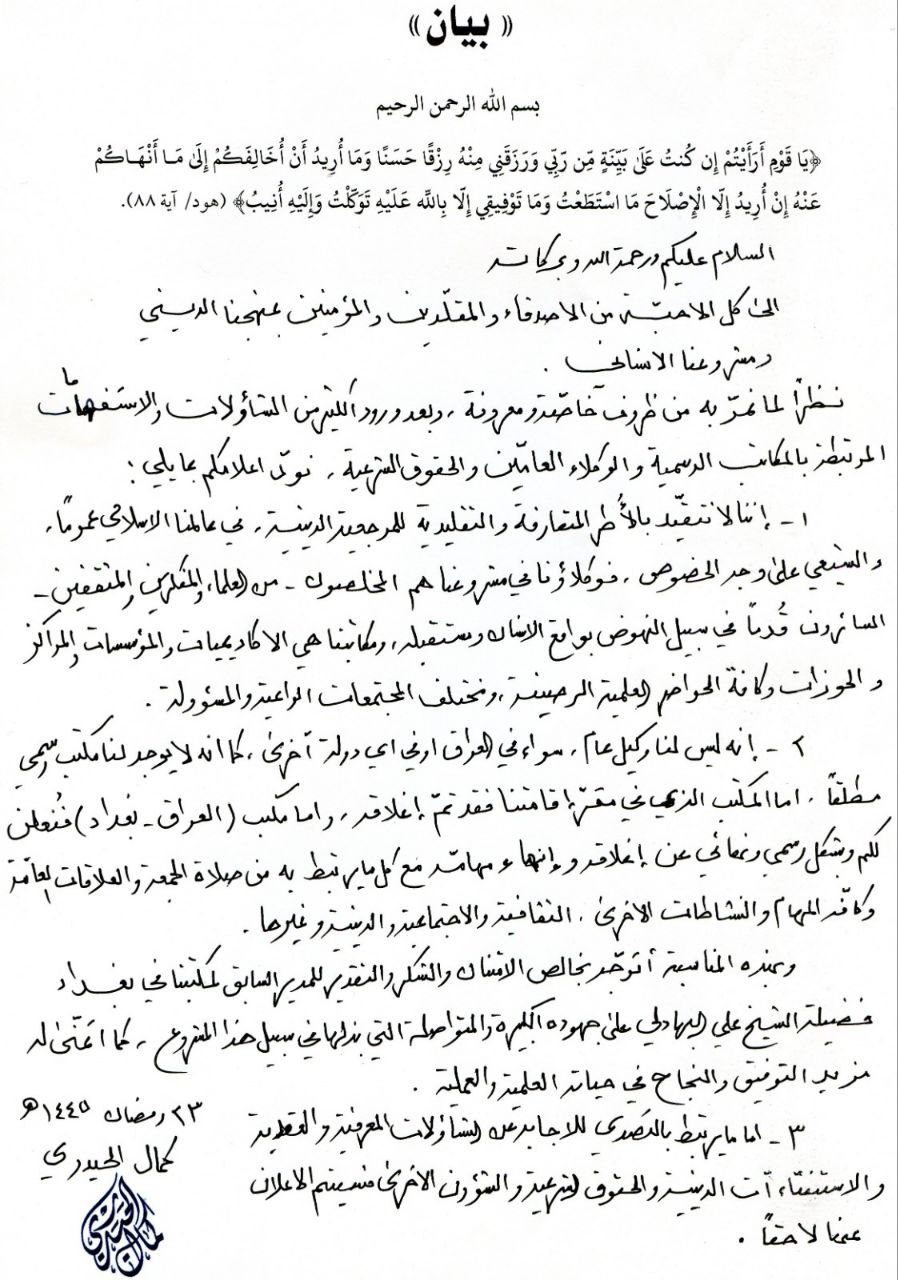 « بيان »
بسم الله الرحمن الرحيم
﴿يَا قَوْمِ أَرَأَيْتُمْ إِن كُنتُ عَلَىٰ بَيِّنَةٍ مِّن رَّبِّي وَرَزَقَنِي مِنْهُ رِزْقًا حَسَنًا وَمَا أُرِيدُ أَنْ أُخَالِفَكُمْ إِلَىٰ مَا أَنْهَاكُمْ
عَنْهُ إِنْ أُرِيدُ إِلَّا الْإِصْلَاحَ مَا اسْتَطَعْتُ وَمَا تَوْفِيقِي إِلَّا بِاللَّه عَلَيْهِ تَوَكَّلْتُ وَإِلَيْهِ أُنِيبُ﴾ (هود/ آية ٨٨).
السلام عليكم ورحمة الله وبركاته
الى كل الاحبّة من الاصدقاء والمقلّدين والمؤمنين بمنهجنا الديني
ومشروعنا الانساني .
نظراً لما نمرّ به من ظروف خاصّة ومعروفة ، وبعد ورود الكثير من التساؤلات والاستفهامات
المرتبطة بالمكاتب الرسمية والوكلاء العامّين والحقوق الشرعية ، نودّ اعلامكم بما يلي :
١ - إننا لا نتقيّد بالأُطر المتعارفة والتقليدية للمرجعية الدينية ، في عالمنا الاسلامي عموماً ،
والشيعي على وجه الخصوص ، فوكلاؤنا في مشروعنا هم المخلصون - من العلماء والمفكرين والمثقفين -
السائرون قُدماً في سبيل النهوض بواقع الانسان ومستقبله ، ومكاتبنا هي الاكاديميات والمؤسسات والمراكز
والحوزات وكافة الحواضر العلمية الرصينة ، ومختلف المجتمعات الواعية والمسؤولة .
٢ - إنه ليس لنا وكيل عام ، سواء في العراق او في اي دولة أخرى ، كما انه لا يوجد لنا مكتب رسمي
مطلقاً ، اما المكتب الذي في مقرّ إقامتنا فقد تمّ إغلاقه ، واما مكتب (العراق - بغداد) فنُعلن
لكم وبشكل رسمي ونهائي عن إغلاقه وإنهاء مهامّه مع كل ما يرتبط به من صلاة الجمعة والعلاقات العامّة
وكافّة المهام والنشاطات الاخرى ، الثقافية والاجتماعية والدينية وغيرها .
وبهذه المناسبة أتوجّه بخالص الامتنان والشكر والتقدير للمدير السابق لمكتبنا في بغداد
فضيلة الشيخ علي البهادلي على جهوده الكبيرة والمتواصلة التي بذلها في سبيل هذا المشروع ، كما اتمنّى له
مزيد التوفيق والنجاح في حياته العلمية والعملية .
٣ - اما ما يرتبط بالتصدي للاجابة عن التساؤلات المعرفية والعقدية
والاستفتاءات الدينية والحقوق الشرعية والشؤون الاخرى فسيتم الاعلان
عنها لاحقاً .
٢٣ رمضان ١٤٤٥هـ
كمال الحيدري
كمال الحيدري